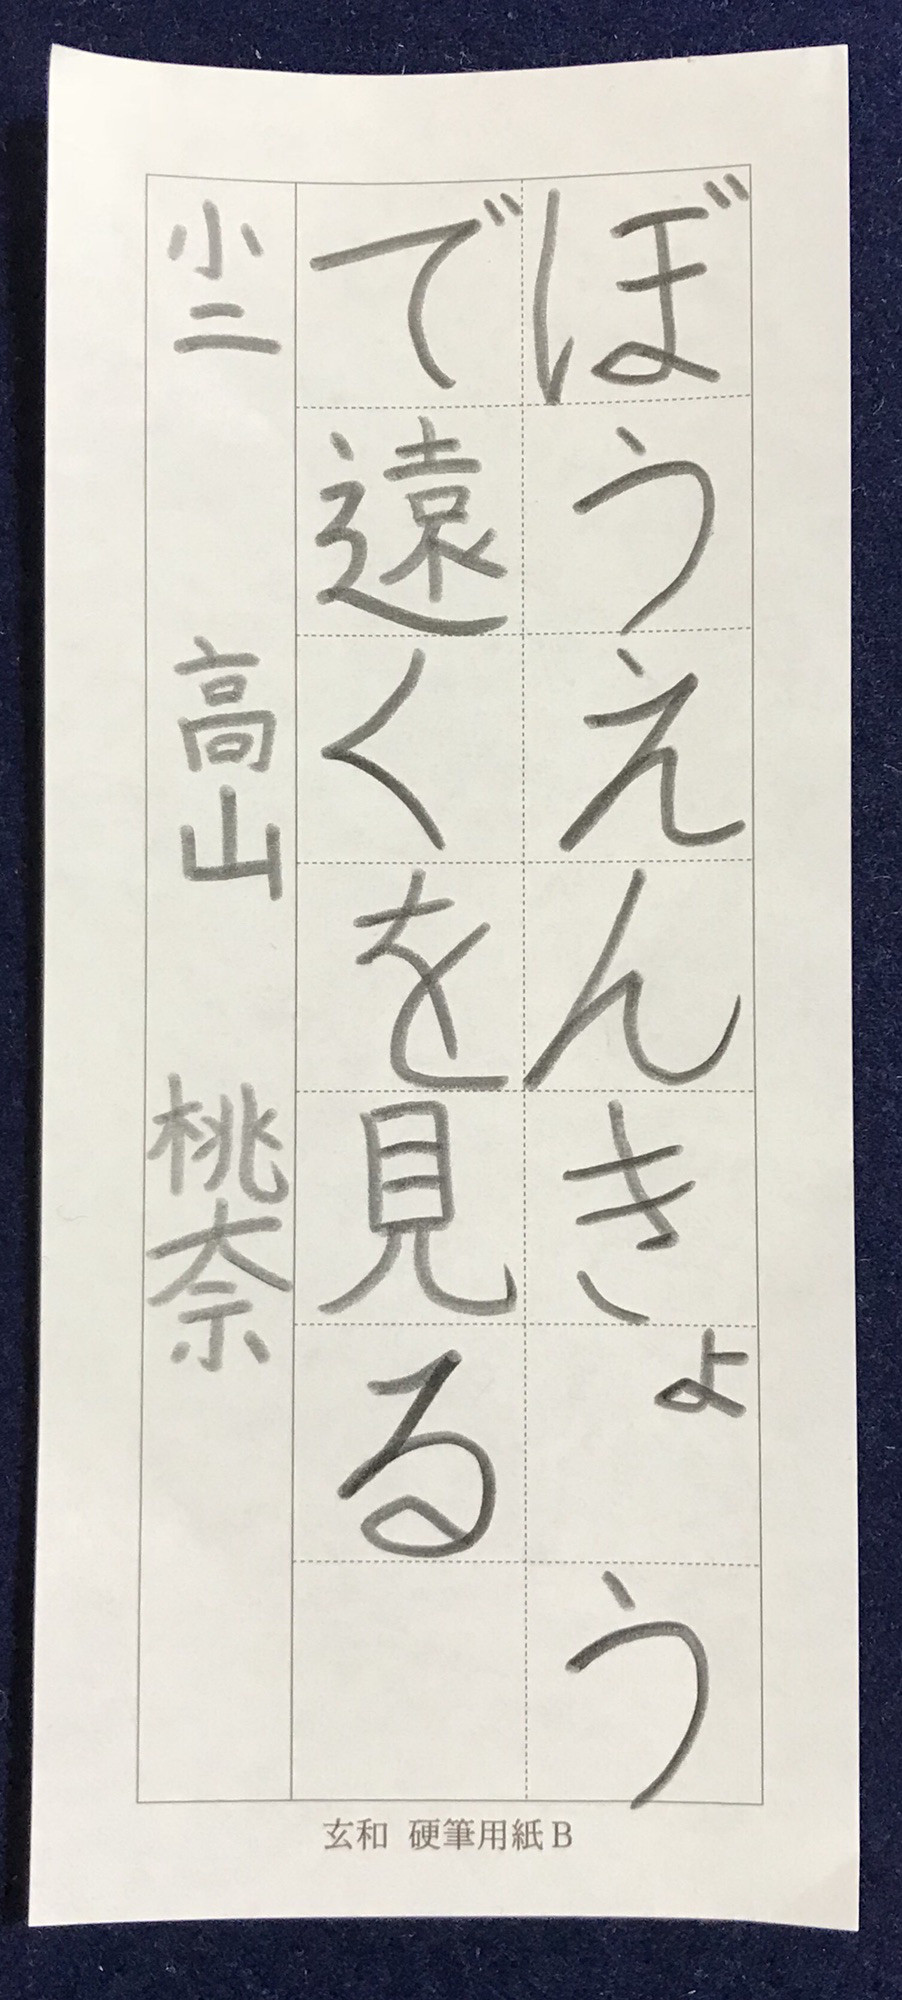 ぼうえんきょう
で遠くを見る
小二 高山 桃奈
玄和 硬筆用紙B